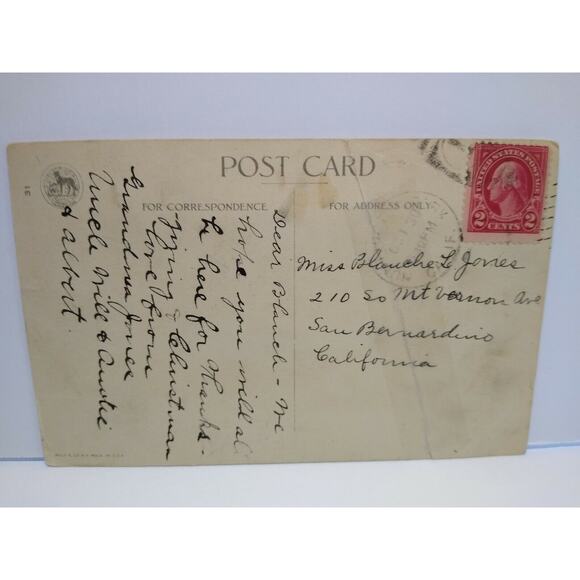 POST CARD
FOR CORRESPONDENCE
FOR ADDRESS ONLY
31
Dear Blanch - We
hope you will al
be here for Thanks-
giving & Christman
love from
Grandma Jones
Uncle Will & Auntie
& Albert.
UNITED STATES POSTAGE
2 CENTS 2
Miss Blanche L Jones
210 So Mt Vernon Ave
San Bernardino
California
MADE IN U.S.A.